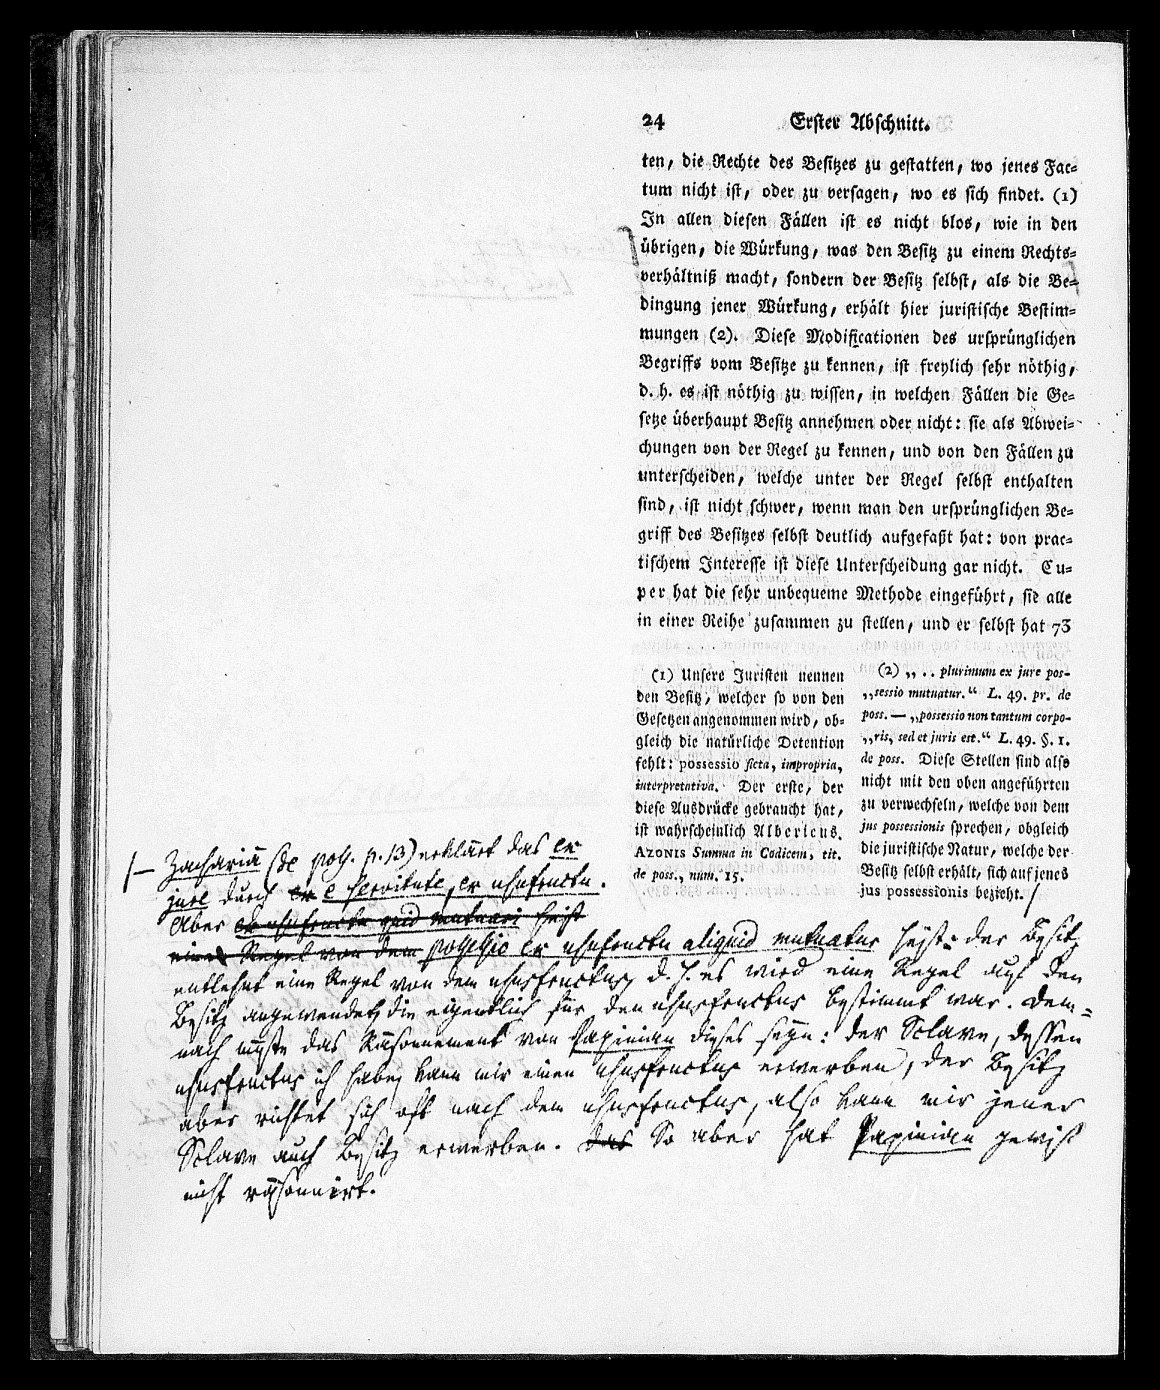 24 Erster Abschnitt.
ten, die Rechte des Besitzes zu gestatten, wo jenes Fac-
tum nicht ist, oder zu versagen, wo es sich findet. (1)
In allen diesen Fällen ist es nicht blos, wie in den
übrigen, die Würkung, was den Besitz zu einem Rechts-
verhältniß macht, sondern der Besitz selbst, als die Be-
dingung jener Würkung, erhält hier juristische Bestim-
mungen (2). Diese Modificationen des ursprünglichen
Begriffs vom Besitze zu kennen, ist freylich sehr nöthig,
d. h. es ist nöthig zu wissen, in welchen Fällen die Ge-
setze überhaupt Besitz annehmen oder nicht: sie als Abwei-
chungen von der Regel zu kennen, und von den Fällen zu
unterscheiden, welche unter der Regel selbst enthalten
sind, ist nicht schwer, wenn man den ursprünglichen Be-
griff des Besitzes selbst deutlich aufgefaßt hat: von prac-
tischem Interesse ist diese Unterscheidung gar nicht. Cu-
per hat die sehr unbequeme Methode eingeführt, sie alle
in einer Reihe zusammen zu stellen, und er selbst hat 73
(1) Unsere Juristen nennen
den Besitz, welcher so von den
Gesetzen angenommen wird, ob-
gleich die natürliche Detention
fehlt: possessio ficta, impropria,
interpretativa. Der erste, der
diese Ausdrücke gebraucht hat,
ist wahrscheinlich Albericus.
AZONIS Summa in Codicem, tit.
de poss., num. 15.
(2) „ . . plurimum ex jure pos-
„sessio mutuatur.“ L. 49. pr. de
poss. — „possessio non tantum corpo-
„ris, sed et juris est.“ L. 49. §. 1.
de poss. Diese Stellen sind also
nicht mit den oben angeführten
zu verwechseln, welche von dem
jus possessionis sprechen, obgleich
die juristische Natur, welche der
Besitz selbst erhält, sich auf jenes
jus possessionis bezieht. /
/— Zachariä (de poss. p. 13) erklärt das ex
jure durch ex e servitute, ex usufructu.
Aber ex usufructu quid mutuari heist
eine Regel von dem possessio ex usufructu aliquid mutuatur heist: der Besitz
entlehnt eine Regel von dem ususfructus, d. h. es wird eine Regel auf den
Besitz angewendet, die eigentlich für den ususfructus bestimmt war. Dem-
nach müste das Räsonnement von Papinian dieses seyn: der Sclave, dessen
ususfructus ich habe, kann mir einen ususfructus erwerben, der Besitz
aber richtet sich oft nach dem ususfructus, also kann mir jener
Sclave auch Besitz erwerben. das So aber hat Papinian gewiß
nicht räsonnirt.